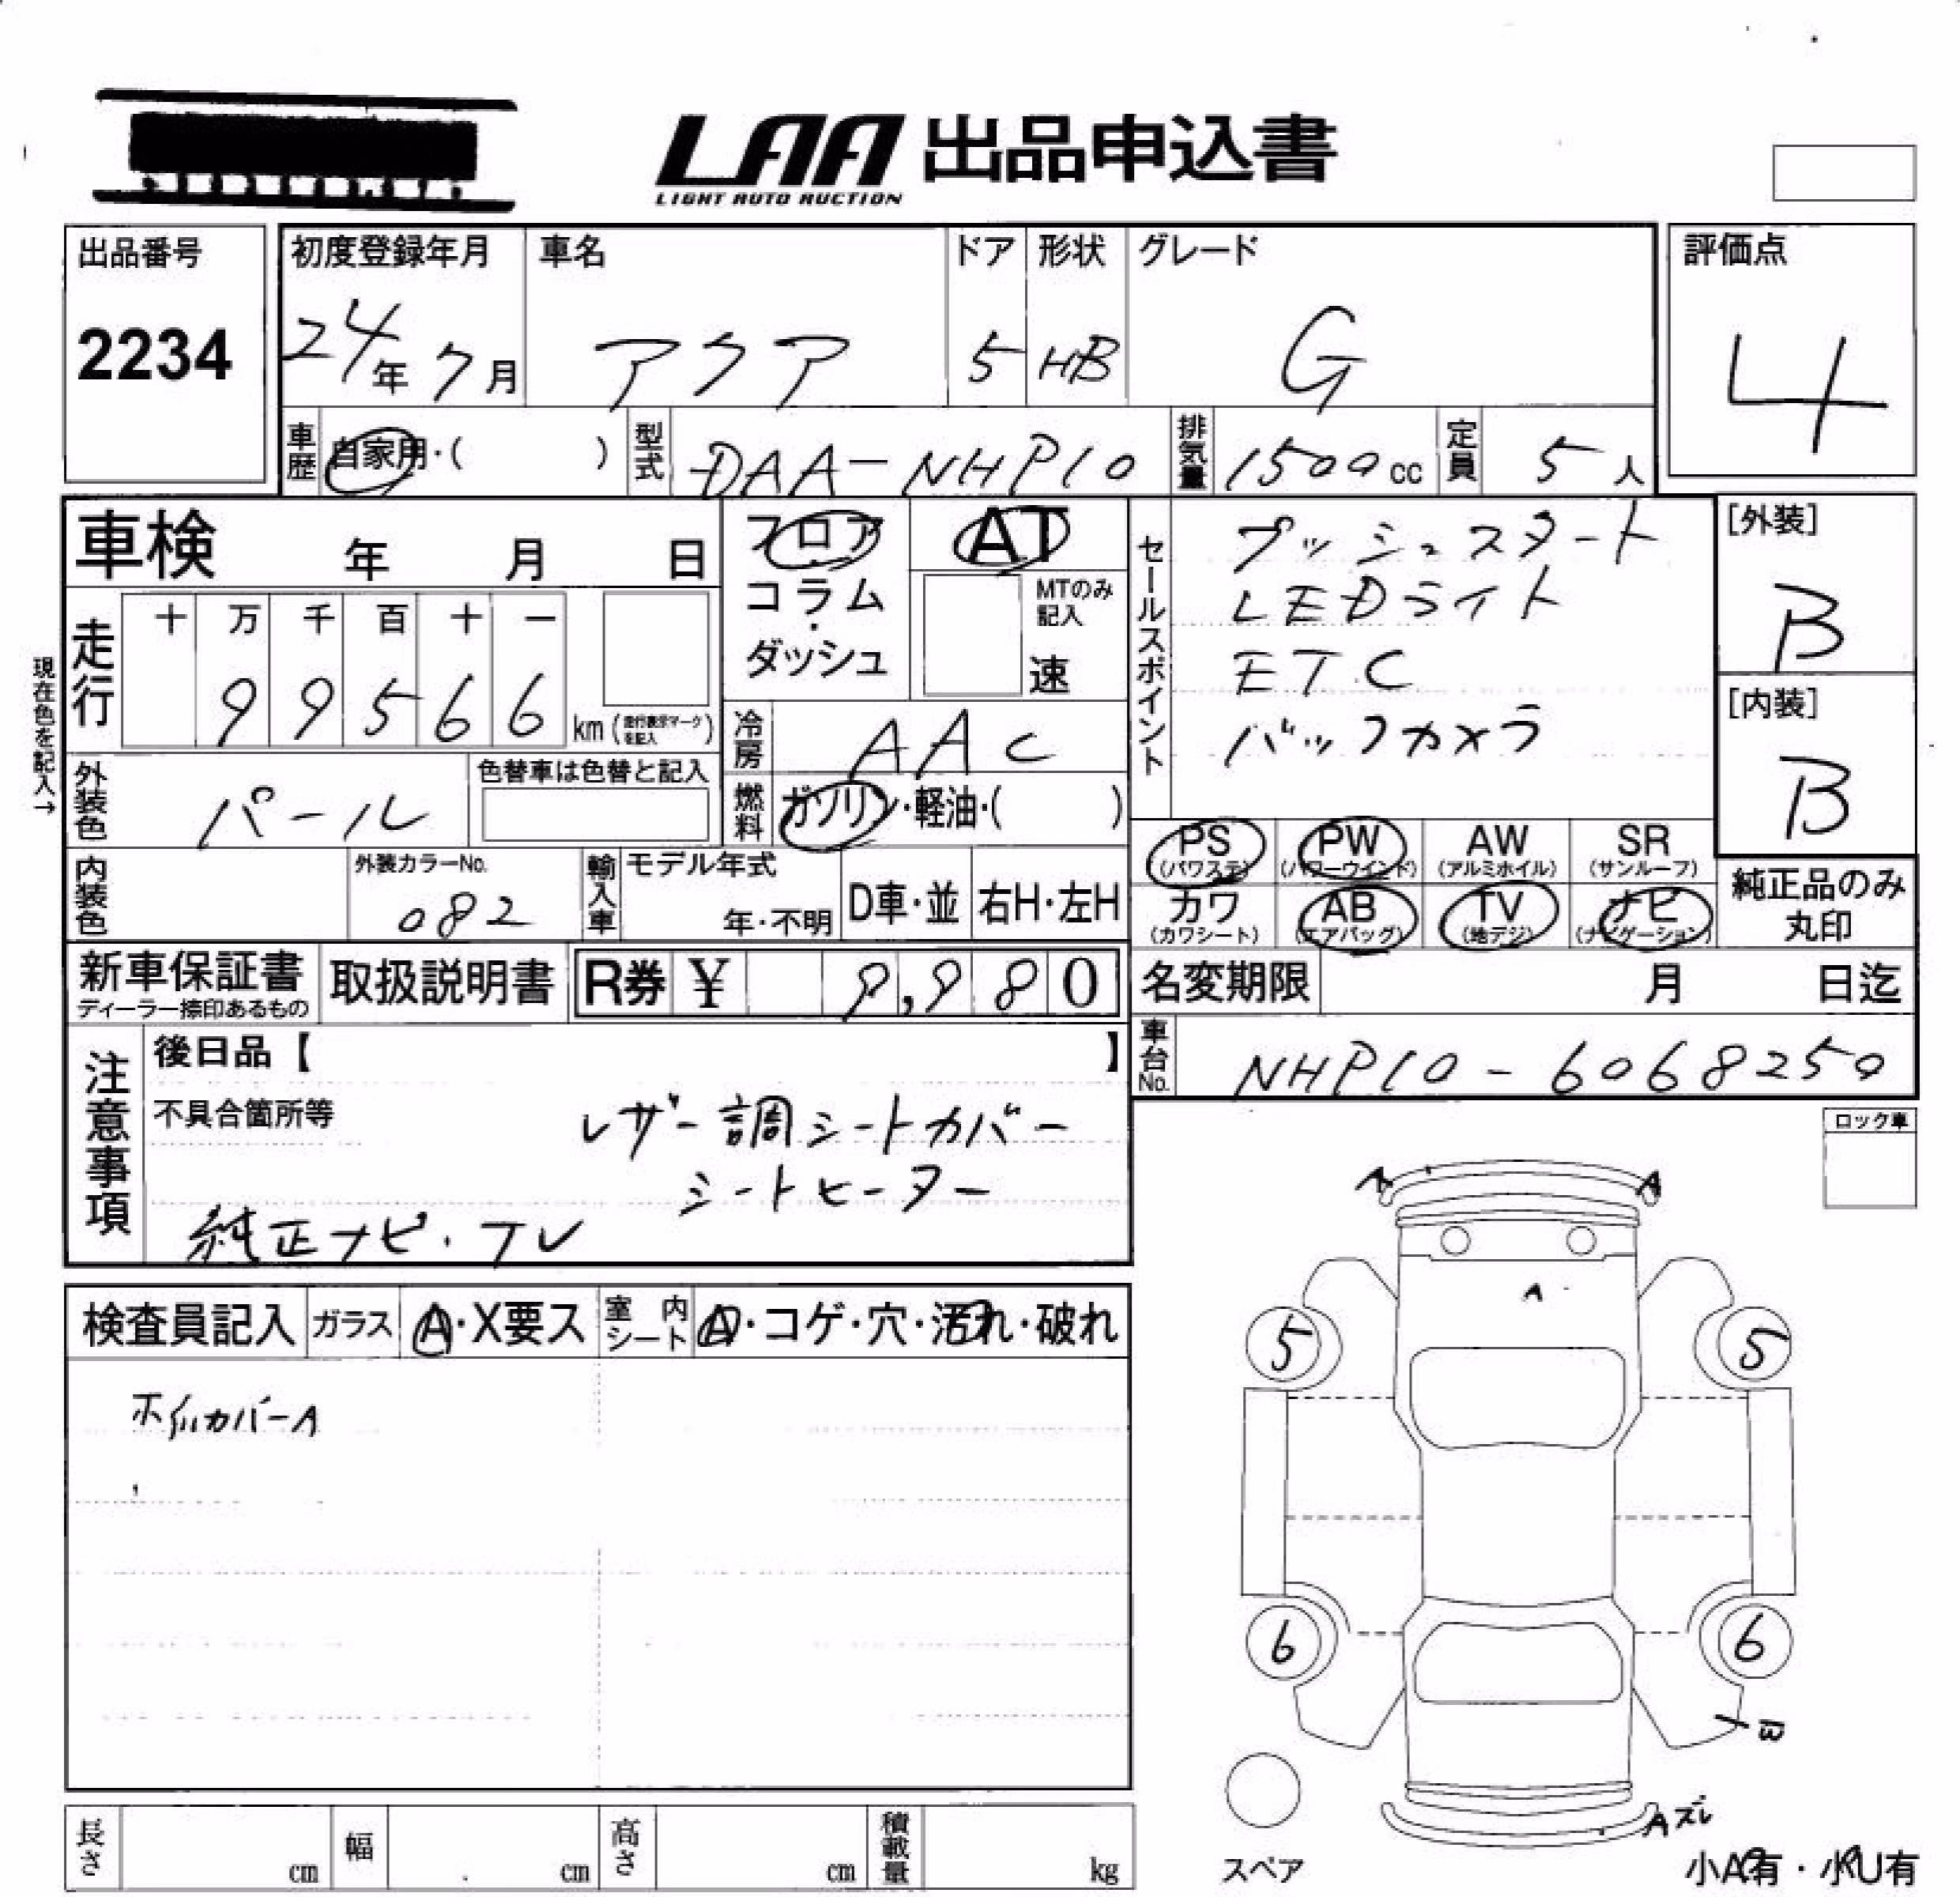 LAA 出品申込書
LIGHT AUTO AUCTION
出品番号
2234
初度登録年月
24年 7月
車名
アクア
ドア
5
形状
HB
グレード
G
評価点
4
車歴
自家用・( )
型式
DAA-NHP10
排気量
1500cc
定員
5人
車検 年 月 日
フロア
コラム
・
ダッシュ
AT
MTのみ
記入
速
セールスポイント
プッシュスタート
LEDライト
ETC
バックカメラ
[外装]
B
[内装]
B
現在色を記入→
走行
十 万 千 百 十 一
9 9 5 6 6
km(走行表示マークを記入)
冷房
AAC
外装色
パール
色替車は色替と記入
燃料
ガソリン・軽油・( )
PS
(パワステ)
PW
(パワーウインド)
AW
(アルミホイル)
SR
(サンルーフ)
内装色
外装カラーNo.
082
輸入車
モデル年式
年・不明
D車・並
右H・左H
カワ
(カワシート)
AB
(エアバッグ)
TV
(地デジ)
ナビ
(ナビゲーション)
純正品のみ
丸印
新車保証書
ディーラー捺印あるもの
取扱説明書
R券 ¥ 9,980
名変期限 月 日迄
車台No.
NHP10-6068250
注意事項
後日品【 】
不具合箇所等
レザー調シートカバー
シートヒーター
純正ナビ・TV
ロック車
検査員記入
ガラス
A・X要ス
室内
シート
A・コゲ・穴・汚れ・破れ
ホイルカバーA
A A
A
5 5
6 6
Aズレ
スペア
小A有・小U有
長さ cm
幅 cm
高さ cm
積載量 kg